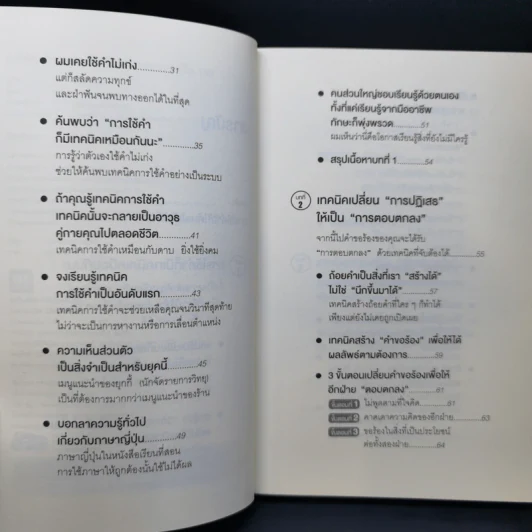 ● ผมเคยใช้คำไม่เก่ง.............31
แต่ก็สลัดความทุกข์
และฝ่าฟันจนพบทางออกได้ในที่สุด
● ค้นพบว่า “การใช้คำ
ก็มีเทคนิคเหมือนกันนะ”..........35
การรู้ว่าตัวเองใช้คำไม่เก่ง
ช่วยให้ค้นพบเทคนิคการใช้คำอย่างเป็นระบบ
● ถ้าคุณรู้เทคนิคการใช้คำ
เทคนิคนั้นจะกลายเป็นอาวุธ
คู่กายคุณไปตลอดชีวิต..........41
เทคนิคการใช้คำเหมือนกับดาบ ยิ่งใช้ยิ่งคม
● จงเรียนรู้เทคนิค
การใช้คำเป็นอันดับแรก..........43
เทคนิคการใช้คำจะช่วยเหลือคุณจนวินาทีสุดท้าย
ไม่ว่าจะเป็นการหางานหรือการเลื่อนตำแหน่ง
● ความเห็นส่วนตัว
เป็นสิ่งจำเป็นสำหรับยุคนี้..........45
เมนูแนะนำของยุกกี้ (นักจัดรายการวิทยุ)
เป็นที่ต้องการมากกว่าเมนูแนะนำของร้าน
● บอกลาความรู้ทั่วไป
เกี่ยวกับภาษาญี่ปุ่น..........49
ภาษาญี่ปุ่นในหนังสือเรียนที่สอน
การใช้ภาษาให้ถูกต้องนั้นใช้ไม่ได้ผล
● คนส่วนใหญ่ชอบเรียนรู้ด้วยตนเอง
ทั้งที่แค่เรียนรู้จากมืออาชีพ
ทักษะก็พุ่งพรวด..........51
ผมเห็นว่านี่คือโอกาสเรียนรู้สิ่งที่ยังไม่มีใครรู้
● สรุปเนื้อหาบทที่ 1..........54
บทที่ 2 เทคนิคเปลี่ยน “การปฏิเสธ”
ให้เป็น “การตอบตกลง”
จากนี้ไปคำขอร้องของคุณจะได้รับ
“การตอบตกลง” ด้วยเทคนิคที่จับต้องได้..........55
● ถ้อยคำเป็นสิ่งที่เรา “สร้างได้”
ไม่ใช่ “นึกขึ้นมาได้”..........57
เทคนิคสร้างถ้อยคำที่ใคร ๆ ก็ทำได้
เพียงแต่ยังไม่เคยถูกเปิดเผย
● เทคนิคสร้าง “คำขอร้อง” เพื่อให้ได้
ผลลัพธ์ตามต้องการ..........59
● 3 ขั้นตอนเปลี่ยนคำขอร้องเพื่อให้
อีกฝ่าย “ตอบตกลง”..........61
ขั้นตอนที่ 1 ไม่พูดตามที่ใจคิด..........61
ขั้นตอนที่ 2 คาดเดาความคิดของอีกฝ่าย..........63
ขั้นตอนที่ 3 ขอร้องในสิ่งที่เป็นประโยชน์
ต่อทั้งสองฝ่าย..........64